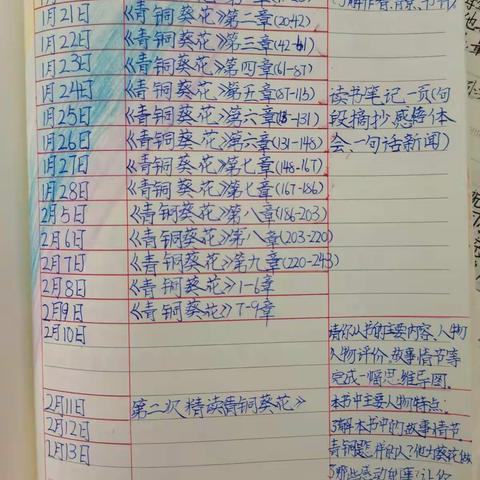 1月21日 《青铜葵花》第二章(20-42)
1月22日 《青铜葵花》第三章(42-61)
1月23日 《青铜葵花》第四章(61-87)
1月24日 《青铜葵花》第五章(87-113)
1月25日 《青铜葵花》第六章(113-131)
1月26日 《青铜葵花》第六章(131-148)
1月27日 《青铜葵花》第七章(148-167)
1月28日 《青铜葵花》第七章(167-186)
2月5日 《青铜葵花》第八章(186-203)
2月6日 《青铜葵花》第八章(203-220)
2月7日 《青铜葵花》第九章(220-243)
2月8日 《青铜葵花》1-6章
2月9日 《青铜葵花》7-9章
2月10日
2月11日 第二次精读《青铜葵花》
2月12日
2月13日
读书笔记一页(句
段摘抄、感悟体
会、一句话新闻)
请你以书的主要内容、人物
人物评价、故事情节等
完成一幅思维导图.
本书中主要人物特点.
了解本书中的故事情节.
青铜是怎样的人?他为葵花做
了哪些感动的事?让你